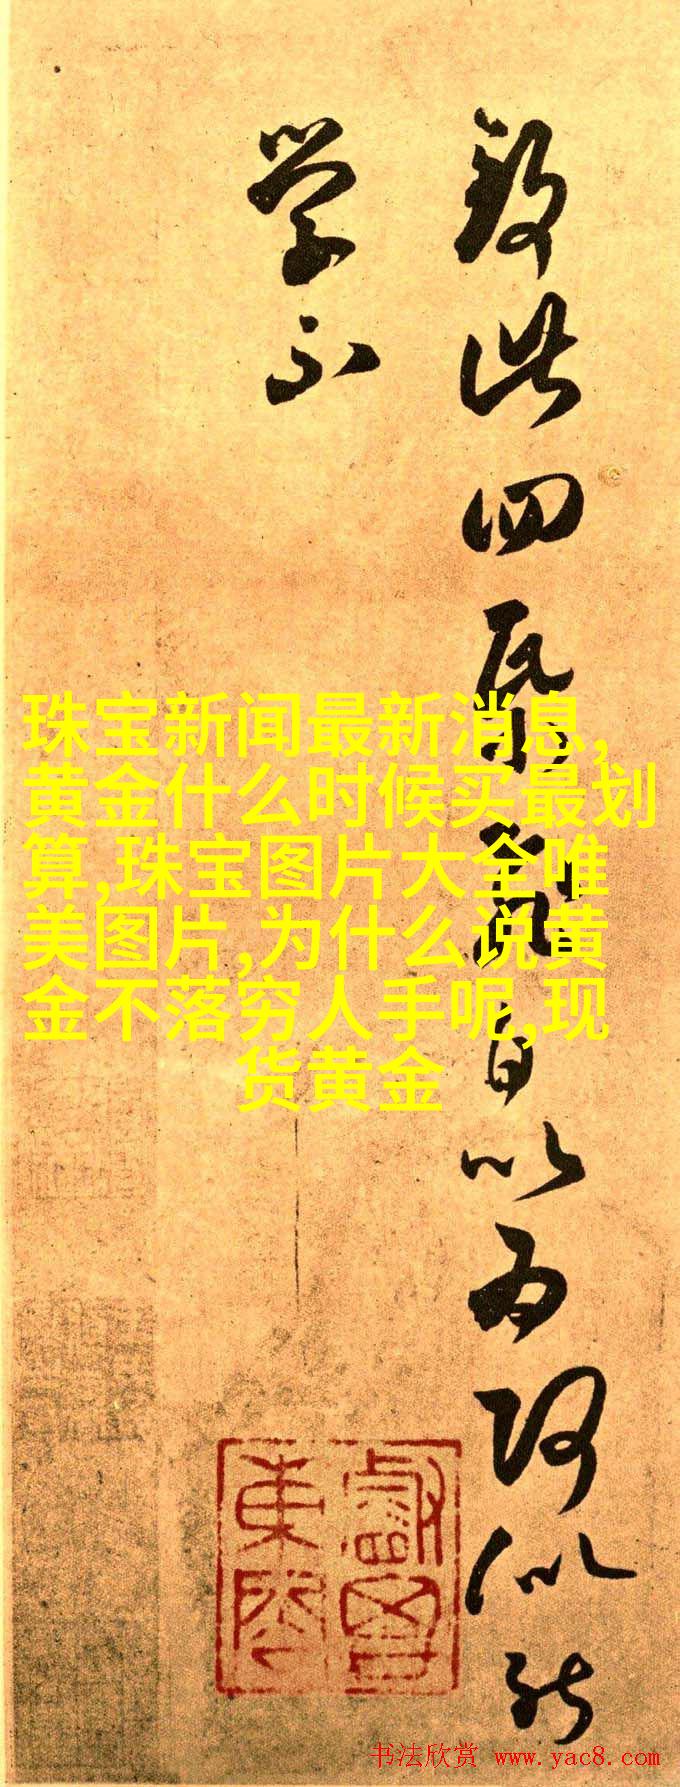 此四自以为似能
学不
珠宝新闻最新消息,
黄金什么时候买最划
算,珠宝图片大全唯
美图片,为什么说黄
金不落穷人手呢,现
货黄金
书法欣赏 www.yac8.com